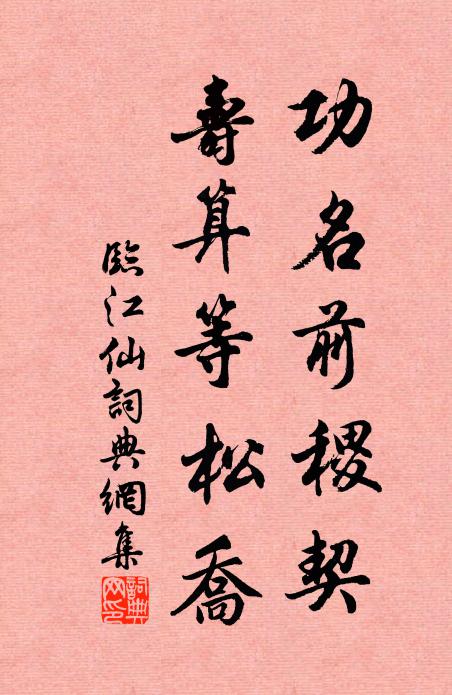 功名前稷契
壽算等松喬
臨江仙詞典網集
詞典網印